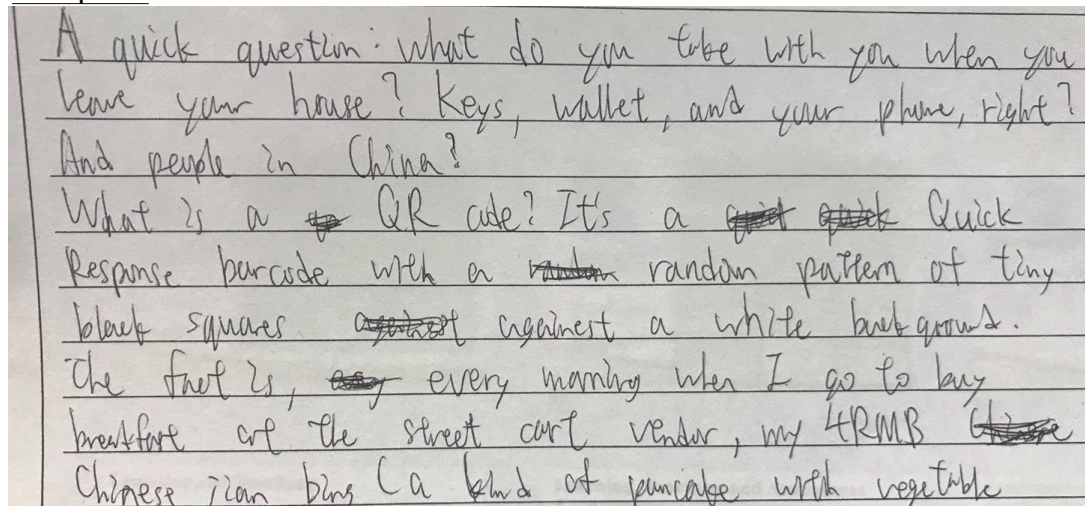 A quick question: what do you take with you when you
leave your house? Keys, wallet, and your phone, right?
And people in China?
What is a QR code? It's a quick Quick
Response barcode with a random random pattern of tiny
black squares against againest a white background.
The fact is, every morning when I go to buy
breakfast at the street cart vendor, my 4RMB
Chinese jian bing (a kind of pancake with vegetable